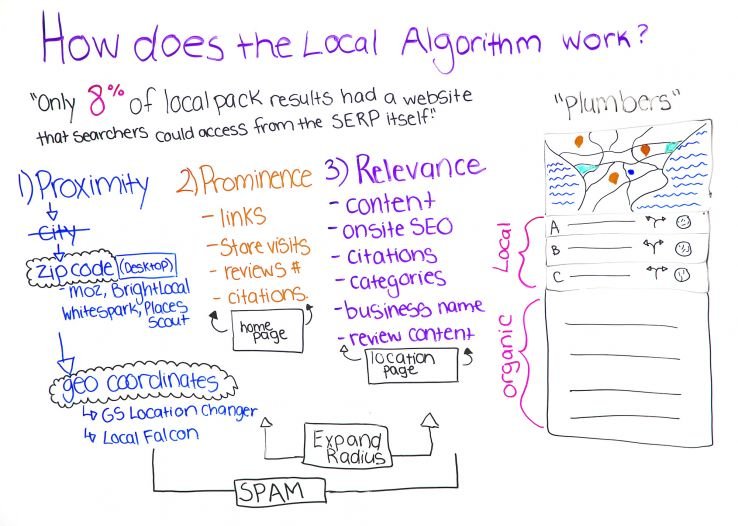 How does the Local Algorithm work?
"Only 8% of local pack results had a website
that searchers could access from the SERP itself."
1) Proximity
City
zip code (Desktop)
- moz, BrightLocal
whitespark, Places
scout
geo coordinates
↳ GS Location Changer
↳ Local Falcon
2) Prominence
- links
- Store visits
- reviews #
- citations.
home
page
3) Relevance
- content
- onsite SEO
- citations
- categories
- business name
- review content
location
page
Expand
Radius
SPAM
"Plumbers"
Local
A
B
C
organic